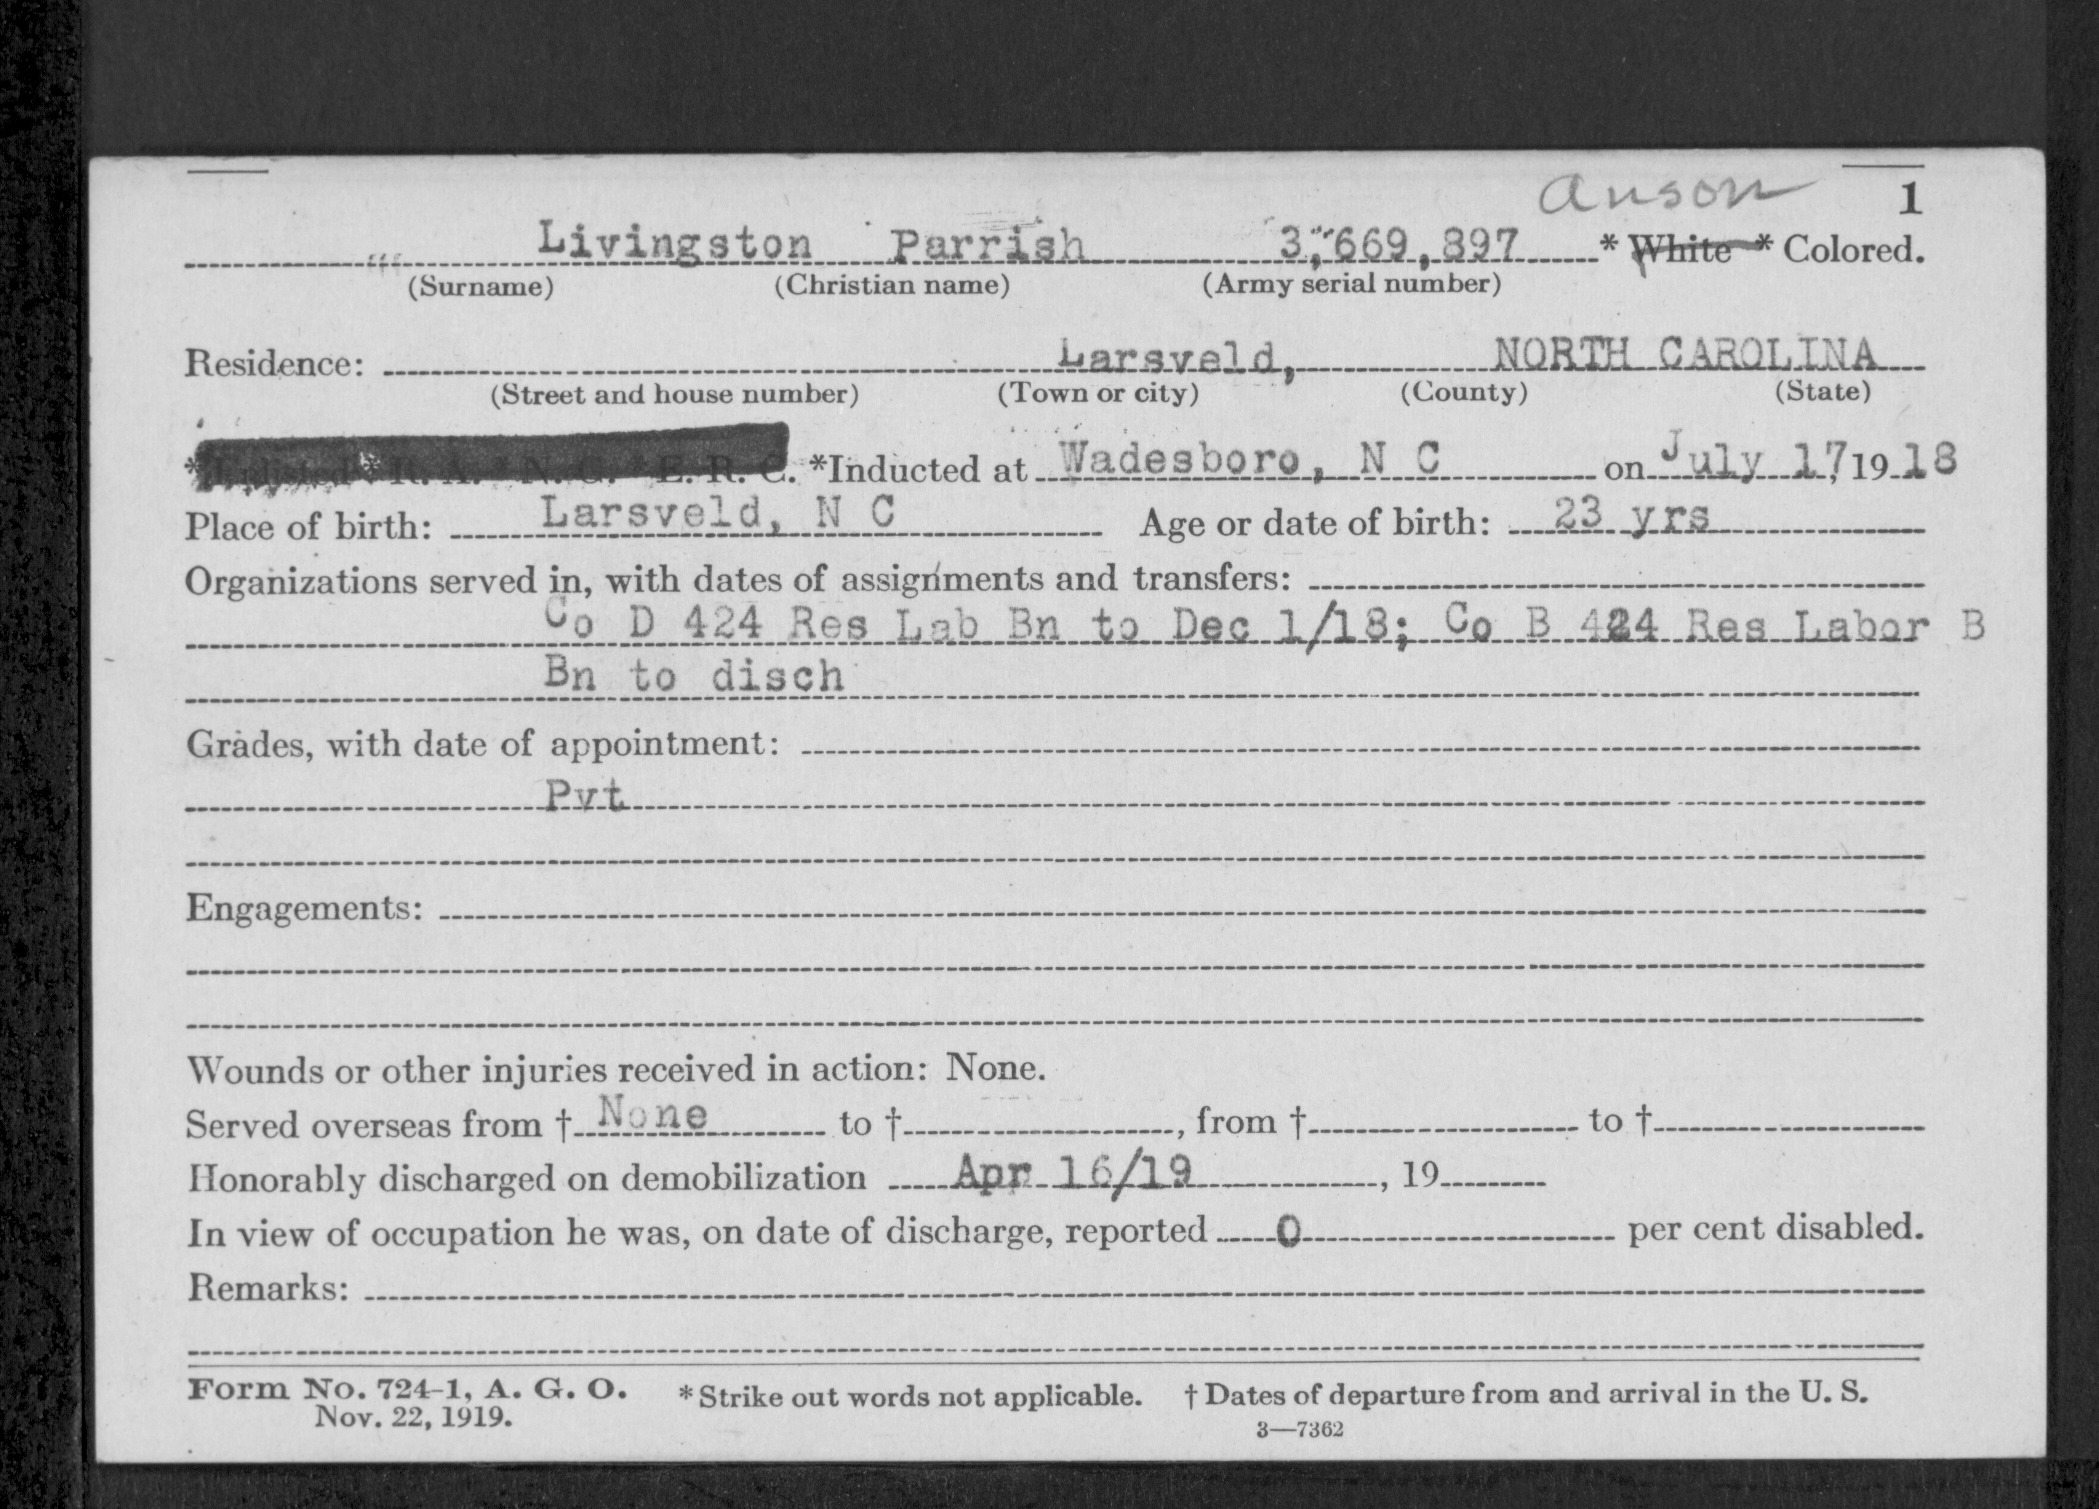 Anson 1
Livingston Parrish 3,669,897 * White * Colored.
(Surname) (Christian name) (Army serial number)
Residence: Larsveld, NORTH CAROLINA
(Street and house number) (Town or city) (County) (State)
*Enlisted * R. A. * N. G. * E. R. C. *Inducted at Wadesboro, N C on July 17, 19 18
Place of birth: Larsveld, N C Age or date of birth: 23 yrs
Organizations served in, with dates of assignments and transfers:
Co D 424 Res Lab Bn to Dec 1/18; Co B 424 Res Labor B
Bn to disch
Grades, with date of appointment:
Pvt
Engagements:
Wounds or other injuries received in action: None.
Served overseas from † None to †, from † to †
Honorably discharged on demobilization Apr 16/19, 19
In view of occupation he was, on date of discharge, reported 0 per cent disabled.
Remarks:
Form No. 724-1, A. G. O. *Strike out words not applicable. † Dates of departure from and arrival in the U. S.
Nov. 22, 1919. 3—7362